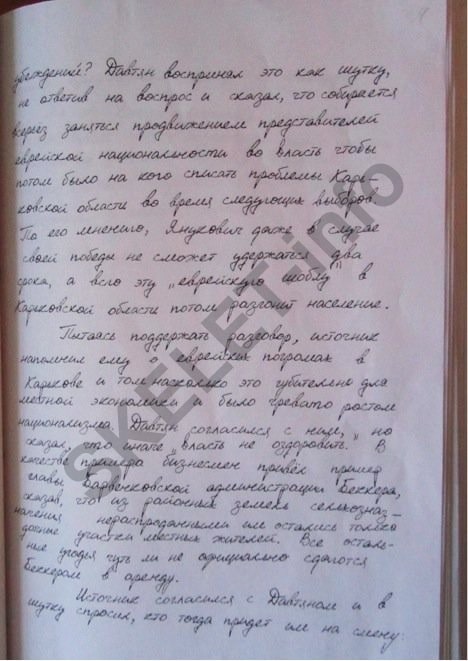 4
убеждений? Давтян воспринял это как шутку,
не ответив на вопрос и сказал, что собирается
всерьез заняться продвижением представителей
еврейской национальности во власть чтобы
потом было на кого списать проблемы Харь-
ковской области во время следующих выборов.
По его мнению, Янукович даже в случае
своей победы не сможет удержаться два
срока, а всю эту „еврейскую шоблу" в
Харьковской области потом разгонит население.
Пытаясь поддержать разговор, источник
напомнил ему о еврейских погромах в
Харькове и том насколько это губительно для
местной экономики и было чревато ростом
национализма. Давтян согласился с ним, но
сказал, что иначе „власть не оздоровить." В
качестве примера бизнесмен привёл пример
главы Барвенковской администрации Беккера,
сказав, что из районных земель сельхозназ-
начения нераспроданными им остались только
дачные участки местных жителей. Все осталь-
ные угодья чуть ли не официально сдаются
Беккером в аренду.
Источник согласился с Давтяном и в
шутку спросил, кто тогда придет им на смену:
SKELET.info